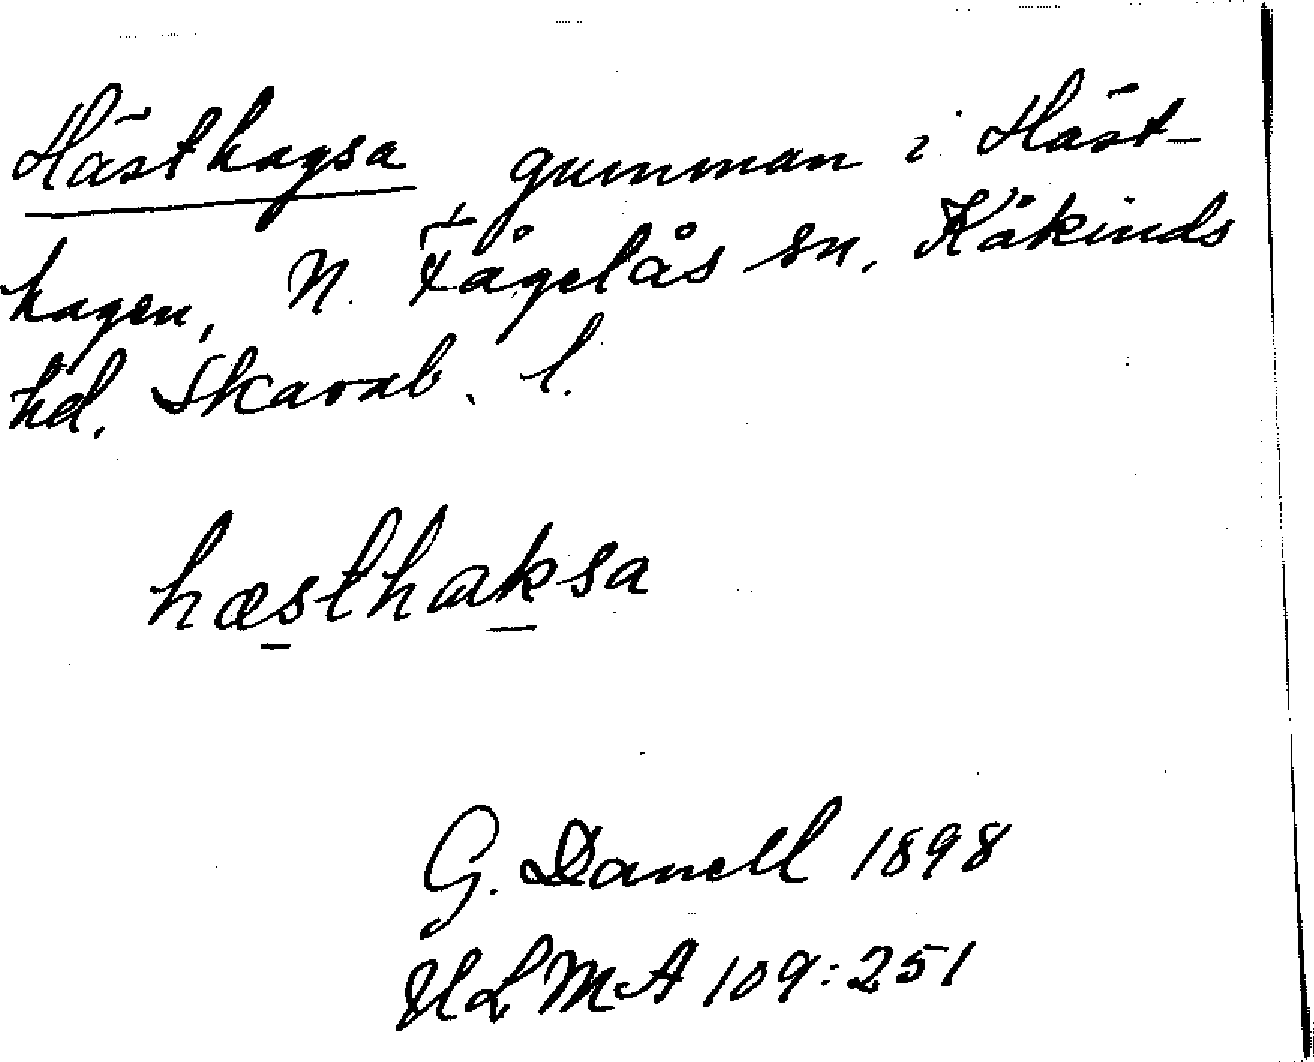 Hästhagsa gumman i Häst-
hagen, N. Fågelås sn, Kåkinds
hd. Skarab. l.
hæsthaksa
G. Danell 1898
ULMA 109:251